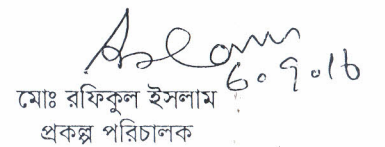 6.9.16
মোঃ রফিকুল ইসলাম
প্রকল্প পরিচালক